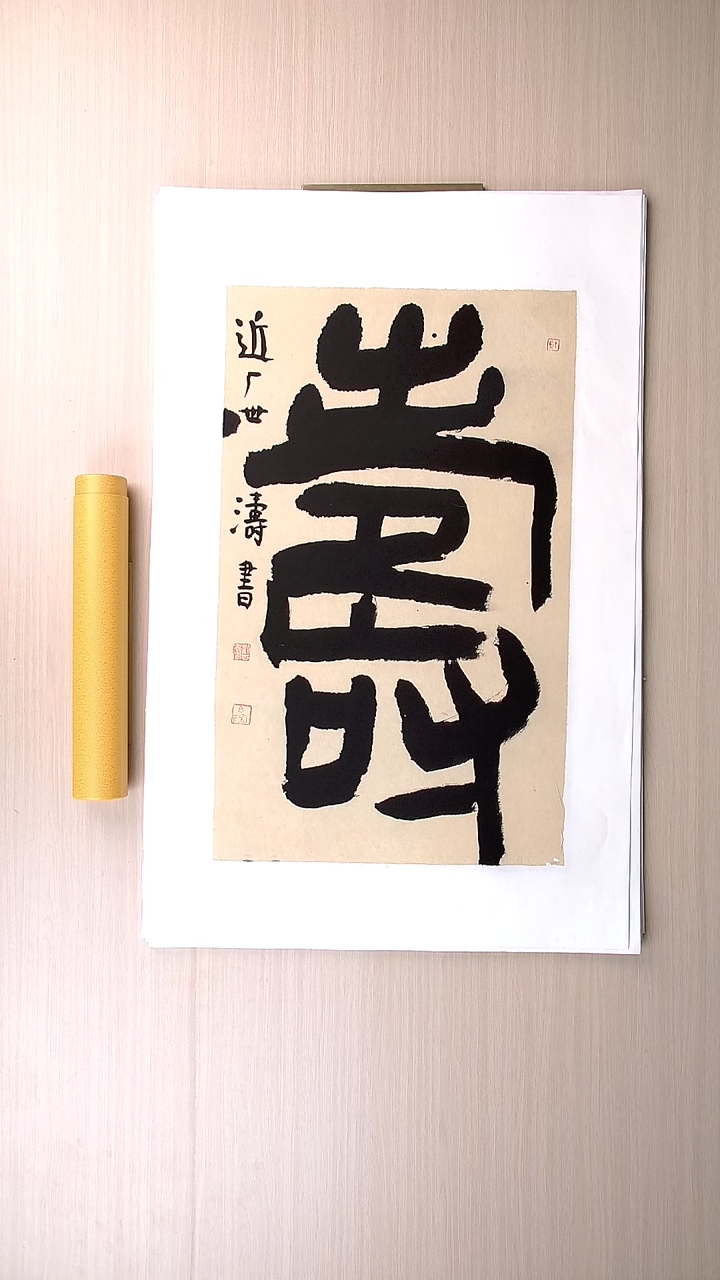 壽
近
世
濤書